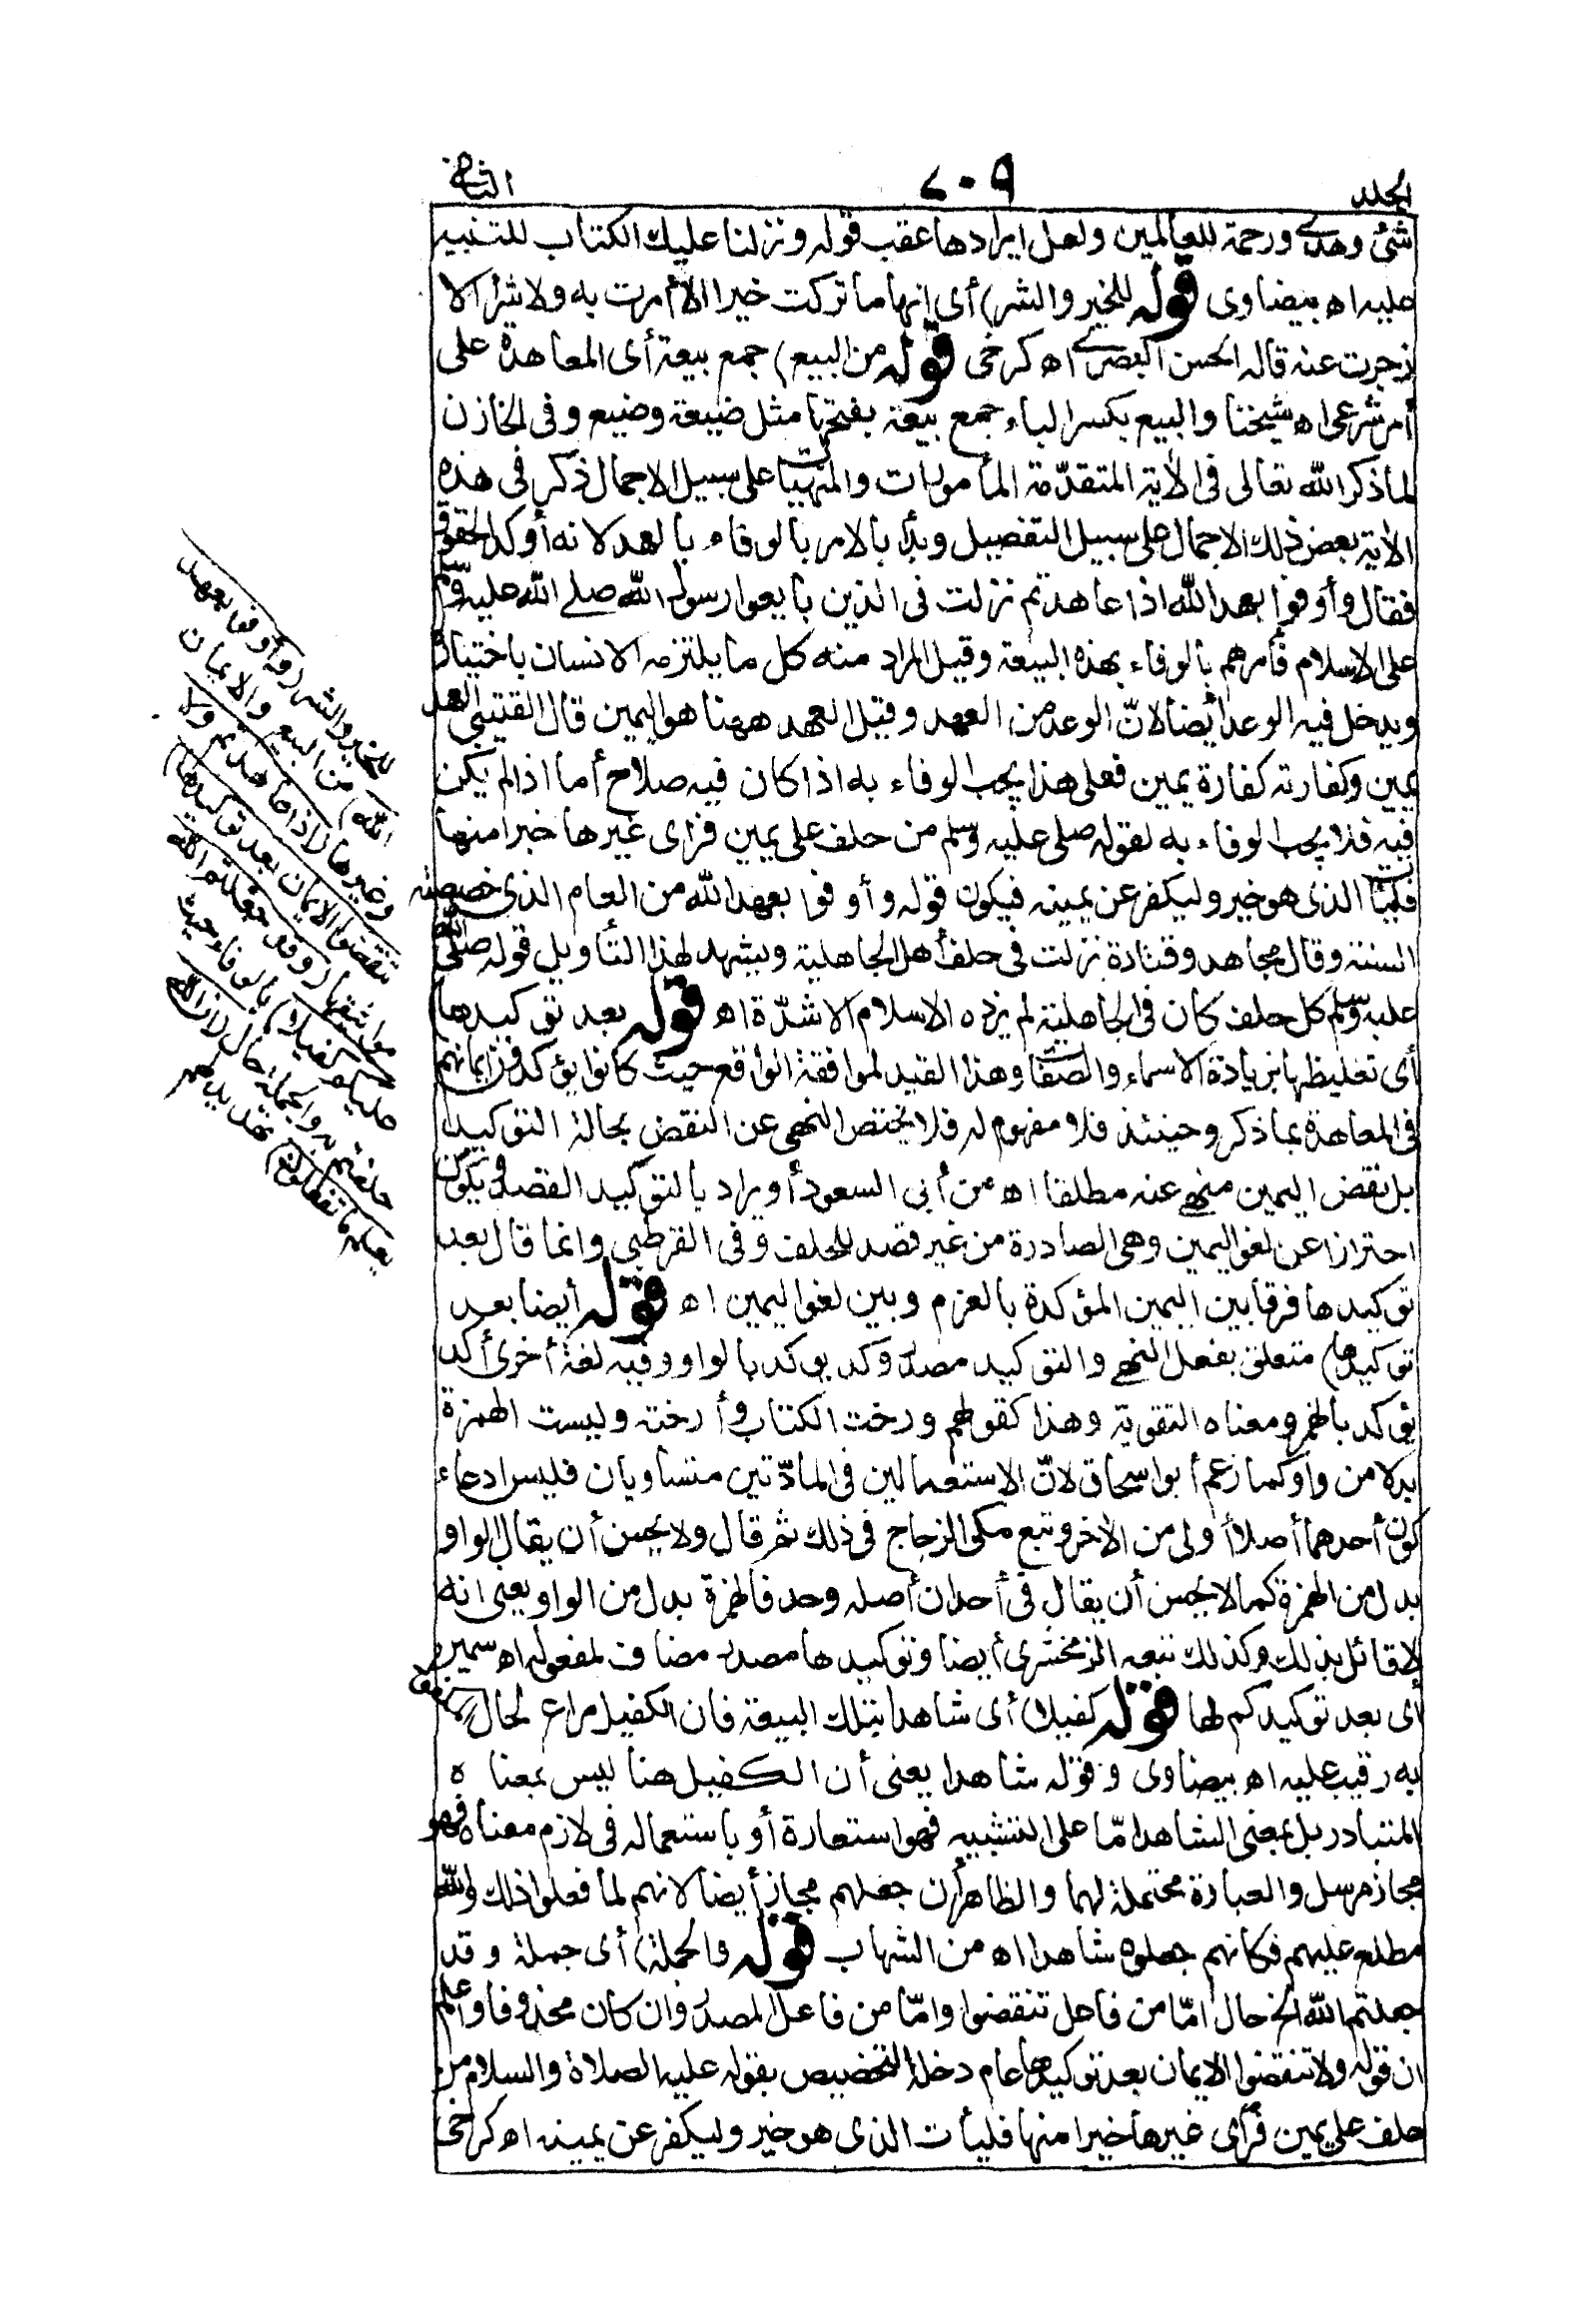 الجلد
٧٠٩
الثاني
شئ وهدى ورحمة للعالمين ولعل ايرادها عقب قوله ونزلنا عليك الكتاب للتنبيه
عليه اه بيضاوى قوله للخير والشر) أى إنها ما تركت خيرا الا أمرت به ولا شرا الا
زجرت عنه قاله الحسن البصرى اه كرخى قوله من البيع) جمع بيعة أى المعاهدة على
أمر شرعى اه شيخنا والبيع بكسر الباء جمع بيعة بفتحها مثل ضيعة وضيع وفى الخازن
لما ذكر الله تعالى فى الآية المتقدّمة المأمورات والمنهيات على سبيل الاجمال ذكر فى هذه
الآية بعض ذلك الاجمال على سبيل التفصيل وبدأ بالامر بالوفاء بالعهد لانه أوكد الحقوق
فقال وأوفوا بعهد الله اذا عاهدتم نزلت فى الذين بايعوا رسول الله صلى الله عليه وسلم
على الاسلام فأمرهم بالوفاء بهذه البيعة وقيل المراد منه كل ما يلتزمه الانسان باختياره
ويدخل فيه الوعد أيضا لانّ الوعد من العهد وقيل العهد ههنا هو اليمين قال القتيبى العهد
يمين وكفارته كفارة يمين فعلى هذا يجب الوفاء به اذا كان فيه صلاح أما اذا لم يكن
فيه فلا يجب الوفاء به لقوله صلى عليه وسلم من حلف على يمين فرأى غيرها خيرا منها
فليأت الذى هو خير وليكفر عن يمينه فيكون قوله وأوفوا بعهد الله من العام الذى خصصته
السنة وقال مجاهد وقتادة نزلت فى حلف أهل الجاهلية ويشهد لهذا التأويل قوله صلى الله
عليه وسلم كل حلف كان فى الجاهلية لم يزده الاسلام الا شدّة اه قوله بعد توكيدها)
أى تغليظها بزيادة الاسماء والصفات وهذا القيد لموافقة الواقع حيث كانوا يؤكدون أيمانهم
فى المعاهدة بما ذكر وحينئذ فلا مفهوم له فلا يختص النهى عن النقض بحالة التوكيد
بل نقض اليمين منهى عنه مطلقا اه من أبى السعود أو يراد بالتوكيد القصد ويكون
احترازا عن لغو اليمين وهى الصادرة من غير قصد للحلف وفى القرطبى وانما قال بعد
توكيدها فرقا بين اليمين المؤكدة بالعزم وبين لغو اليمين اه قوله أيضا بعد
توكيدها) متعلق بفعل النهى والتوكيد مصدر وكد يوكد بالواو وفيه لغة أخرى أكد
يؤكد بالهمز ومعناه التقوية وهذا كقولهم ورخت الكتاب وأرخته وليست الهمزة
بدلا من واو كما زعم أبو اسحاق لانّ الاستعمالين فى المادّتين متساويان فليس ادعاء
كون أحدهما أصلا أولى من الآخر وتبع مكى الزجاج فى ذلك ثم قال ولا يحسن أن يقال الواو
بدل من الهمزة كما لا يحسن أن يقال فى أحد ان أصله وحد فالهمزة بدل من الواو يعنى انه
لا قائل بذلك وكذلك تبعه الزمخشرى أيضا وتوكيدها مصدر مضاف لمفعوله اه سمين
أى بعد توكيدكم لها قوله كفيلا) أى شاهدا بتلك البيعة فان الكفيل مراع لحال المكفول
به رقيب عليه اه بيضاوى وقوله شاهدا يعنى أن الكفيل هنا ليس بمعناه
المتبادر بل بمعنى الشاهد امّا على التشبيه فهو استعارة أو باستعماله فى لازم معناه فهو
مجاز مرسل والعبارة محتملة لهما والظاهر أن جعلهم مجاز أيضا لانهم لما فعلوا ذلك والله
مطلع عليهم فكانهم جعلوه شاهدا اه من الشهاب قوله والجملة) أى جملة وقد
جعلتم الله الخ حال امّا من فاعل تنقضوا وامّا من فاعل المصدر وان كان محذوفا واعلم
ان قوله ولا تنقضوا الايمان بعد توكيدها عام دخله التخصيص بقوله عليه الصلاة والسلام من
حلف على يمين فرأى غيرها خيرا منها فليأت الذى هو خير وليكفر عن يمينه اه كرخى
للخير والشر (وأوفوا بعهد
الله) من البيع والايمان
وغيرها (اذا عاهدتم ولا
تنقضوا الايمان بعد توكيدها)
موا ثيقها (وقد جعلتم الله
عليكم كفيلا) بالوفاء حيث
حلفتم به والجملة حال (ان الله
يعلم ما تفعلون) تهديد لهم